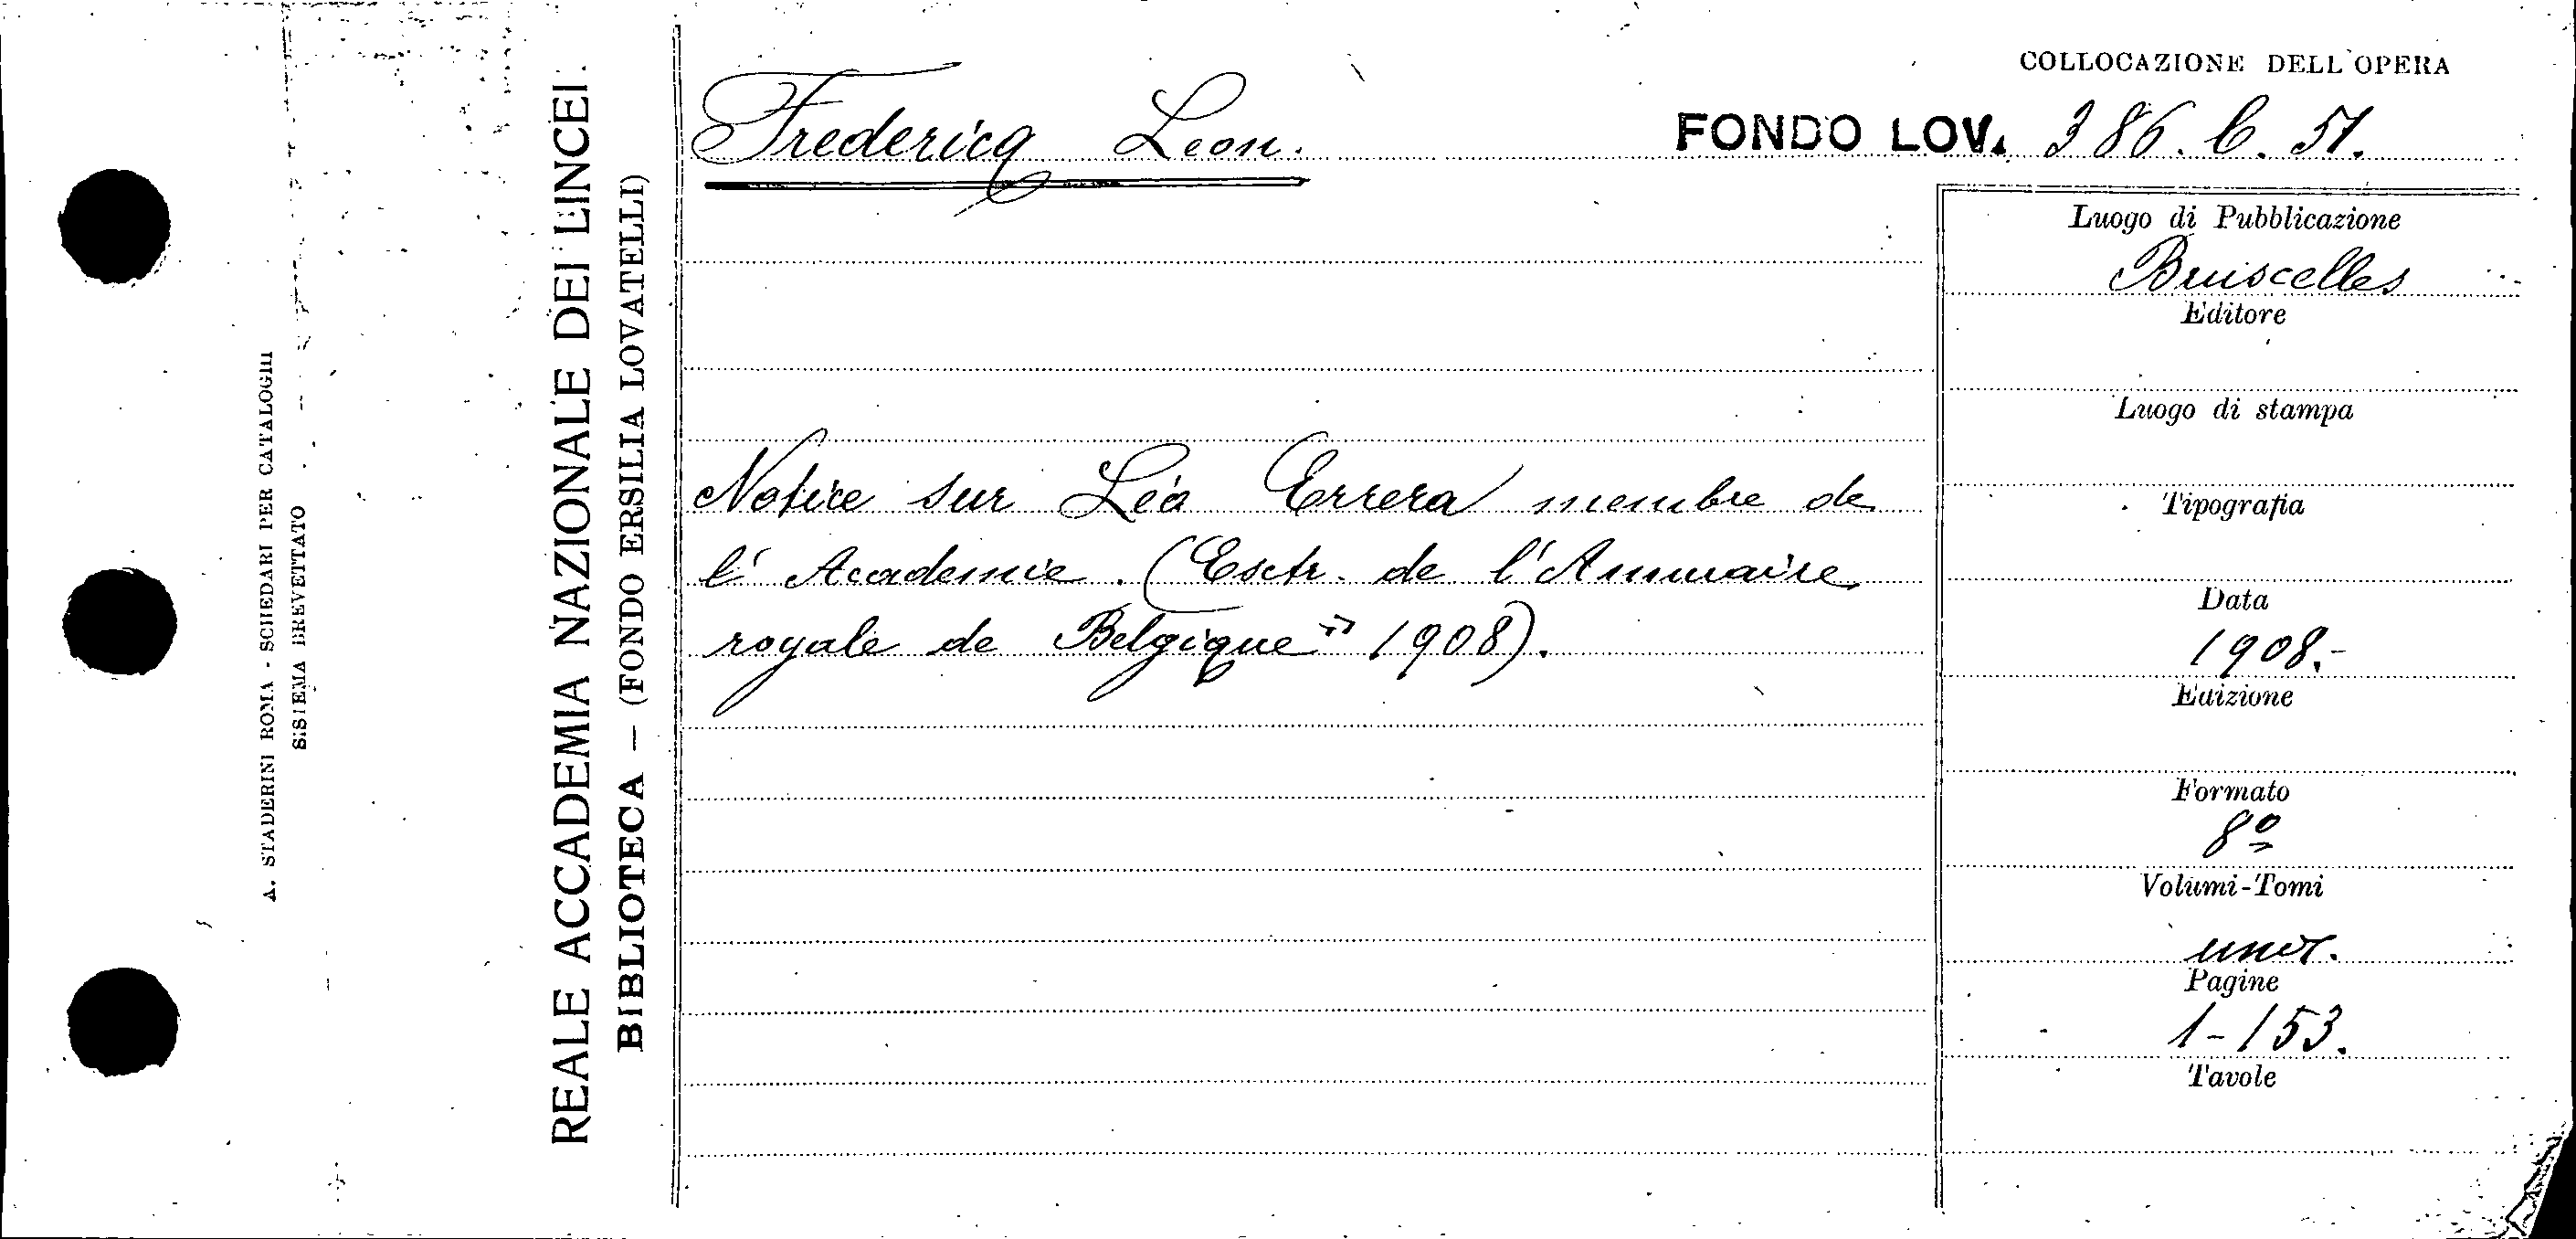 COLLOCAZIONE DELL'OPERA
Fredericq Leon.
FONDO LOV. 386. C. 51.
Notice sur Léo Errera membre de
l' Academie. (Esctr. de l'Annuaire
royale de Belgique" 1908).
Luogo di Pubblicazione
Bruscelles
Editore
Luogo di stampa
Tipografia
Data
1908.-
Edizione
Formato
8º
Volumi-Tomi
uno.
Pagine
1-153.
Tavole
REALE ACCADEMIA NAZIONALE DEI LINCEI
BIBLIOTECA — (FONDO ERSILIA LOVATELLI)
A. STADERINI ROMA - SCHEDARI PER CATALOGHI
SISTEMA BREVETTATO